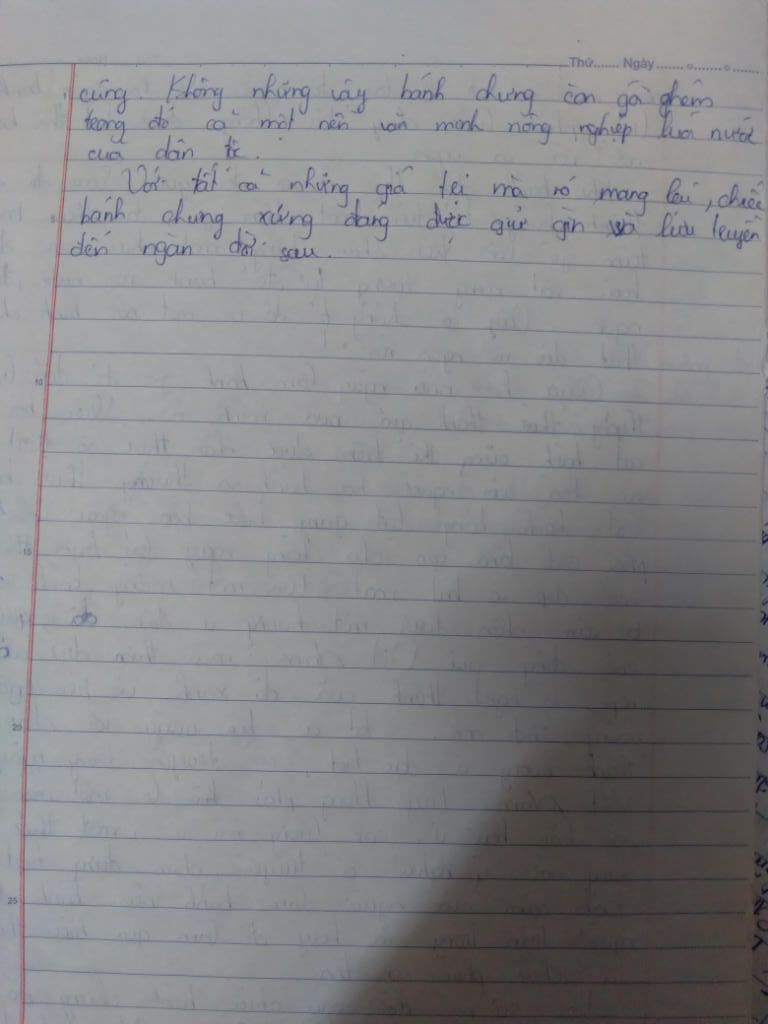 Thứ...... Ngày.......o.......o.......
cúng. Không những vậy bánh chưng còn gói ghém
trong đó cả một nền văn minh nông nghiệp lúa nước
của dân tộc.
Với tất cả những giá trị mà nó mang lại, chiếc
bánh chưng xứng đáng được giữ gìn và lưu truyền
đến ngàn đời sau.
10
15
20
25